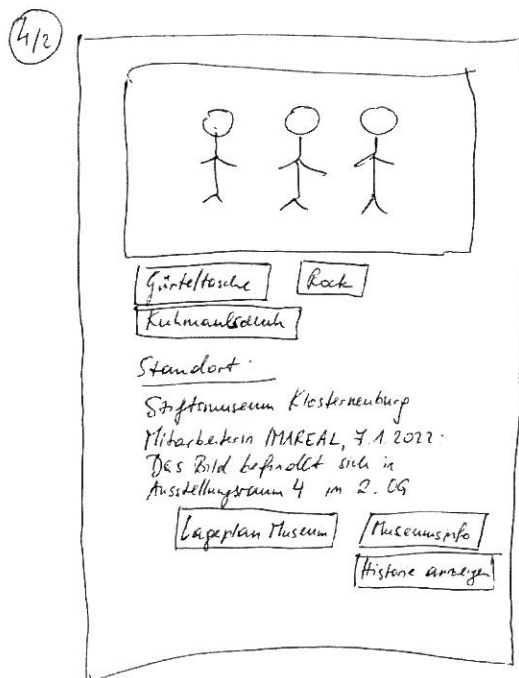 4/2
Gürteltasche Rock
Kuhmaulschuh
Standort:
Stiftsmuseum Klosterneuburg
Mitarbeiterin IMAREAL, 7.1.2022:
Das Bild befindet sich in
Ausstellungsraum 4 im 2. OG
Lageplan Museum Museumsinfo
Historie anzeigen